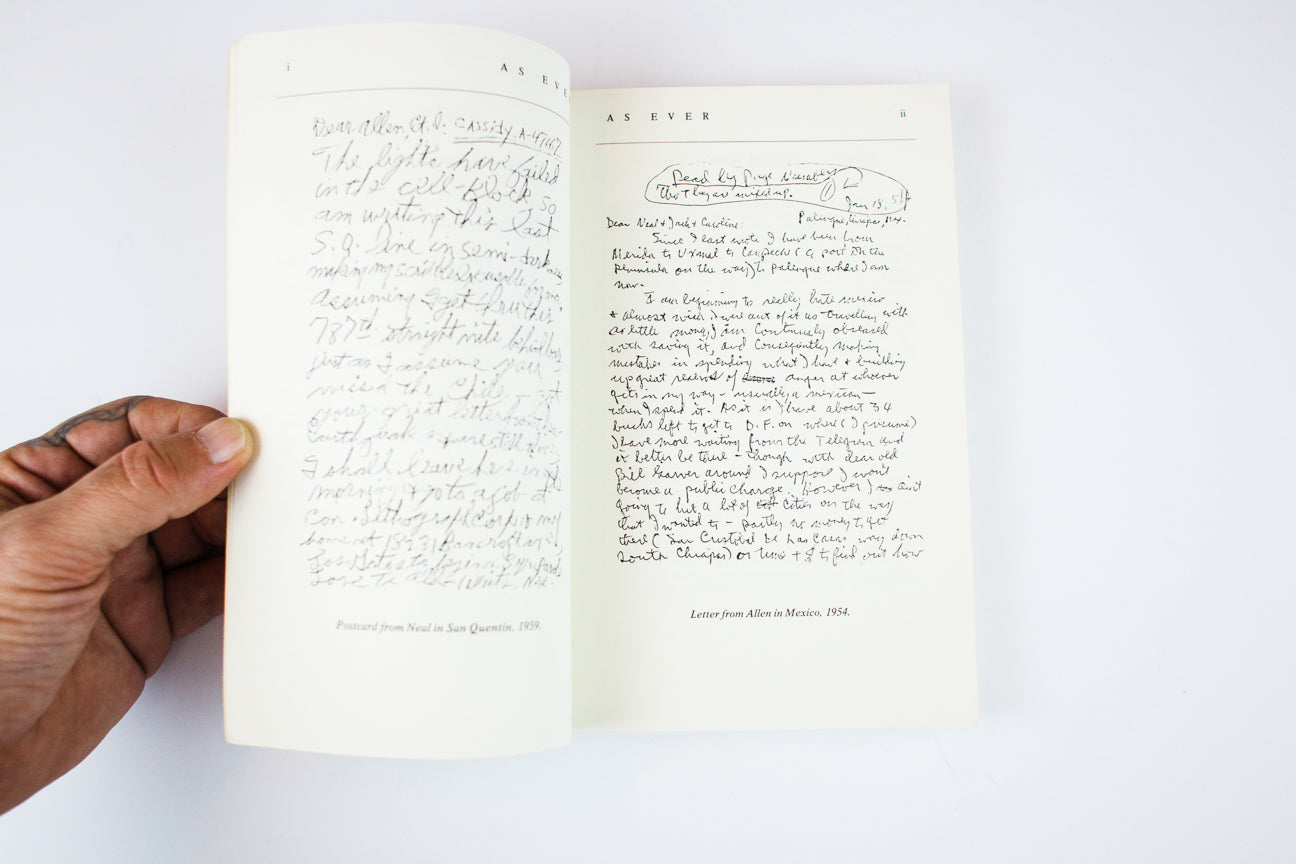 i
AS EVE
Dear Allen, CASSidy. A-47667
The lights have failed
in the cell-block so
am writing this last
S.Q. line in semi-dark
making my scribble
assuming I get thru this
787th straight nite behind
just as I assume you
missed the Chile
your great letter from
Earthquake & are still
I shall leave here in
morning & go to a job
con. Lithograph Corp
home at 18231 Bancroft
Los Gatos
Love to all
Postcard from Neal in San Quentin, 1959.
AS EVER
ii
Read by Page
Tho they are mixed up.
Jan 18, 54
Palenque, Chiapas, Mex.
Dear Neal & Jack & Caroline:
Since I last wrote I have been from
Merida to Uxmal to Campeche (a port on the
Peninsula on the way) to palenque where I am
now.
I am beginning to really hate mexico
& almost wish I were out of it as travelling with
as little money I am continuously obsessed
with saving it, and consequently making
mistakes in spending what I have & building
up great reserves of anger at whoever
gets in my way - usually a mexican -
when I spend it. As it is I have about 34
bucks left to get to D.F. on where (I presume)
I have more waiting from the Telegram and
it better be true - though with dear old
Bill Garver around I suppose I won't
become a public charge. However I ain't
going to hit a lot of cities on the way
that I wanted to - partly no money to get
there (San Cristobal de las Casas way down
South Chiapas) or time & I to find out how
Letter from Allen in Mexico, 1954.